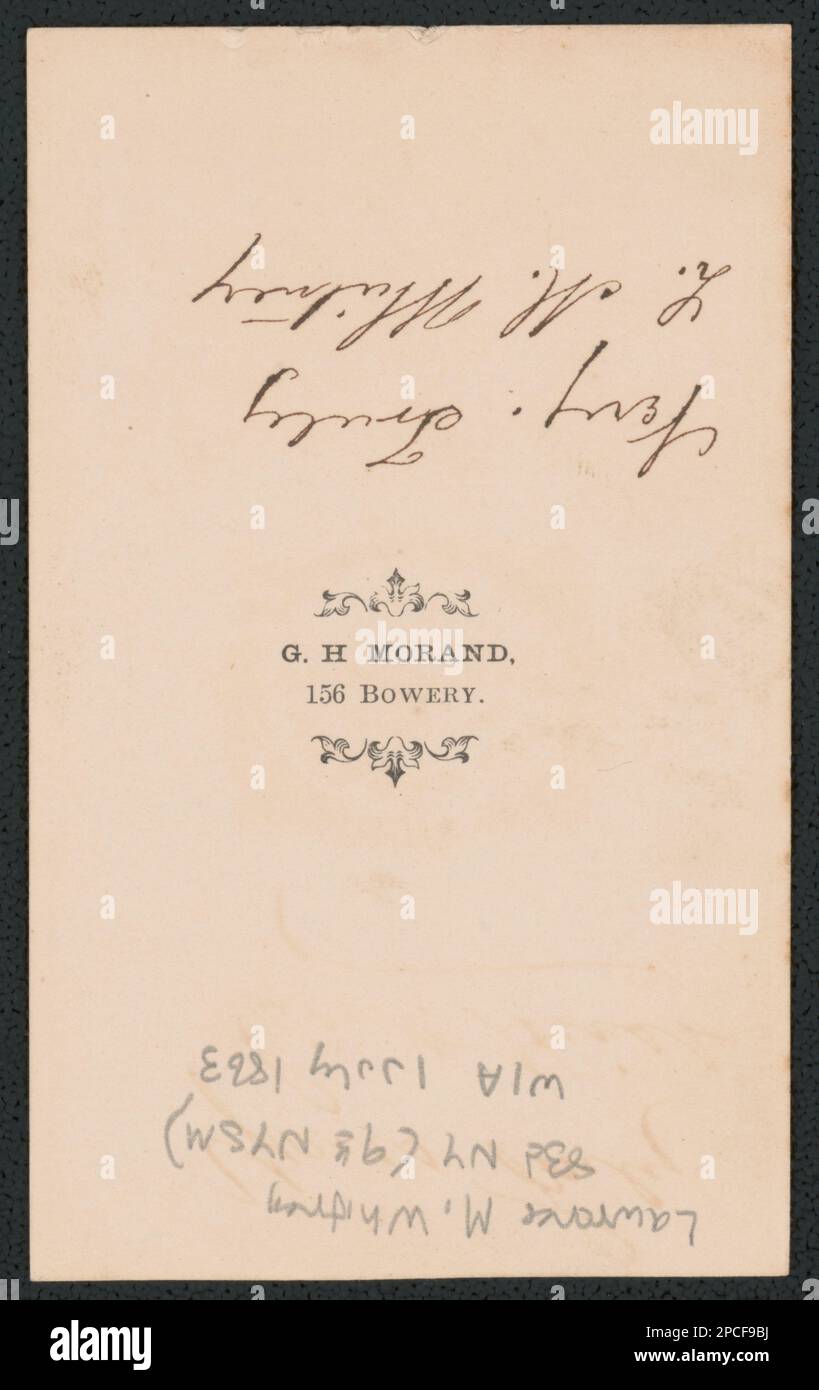 Very. Truly
L. M. Whitney
G. H MORAND,
156 BOWERY.
Lawrance M. Whitney
83d NY (9th NYSM)
WIA 1 July 1863
alamy
alamy
a
alamy
Image ID: 2PCF9BJ
www.alamy.com